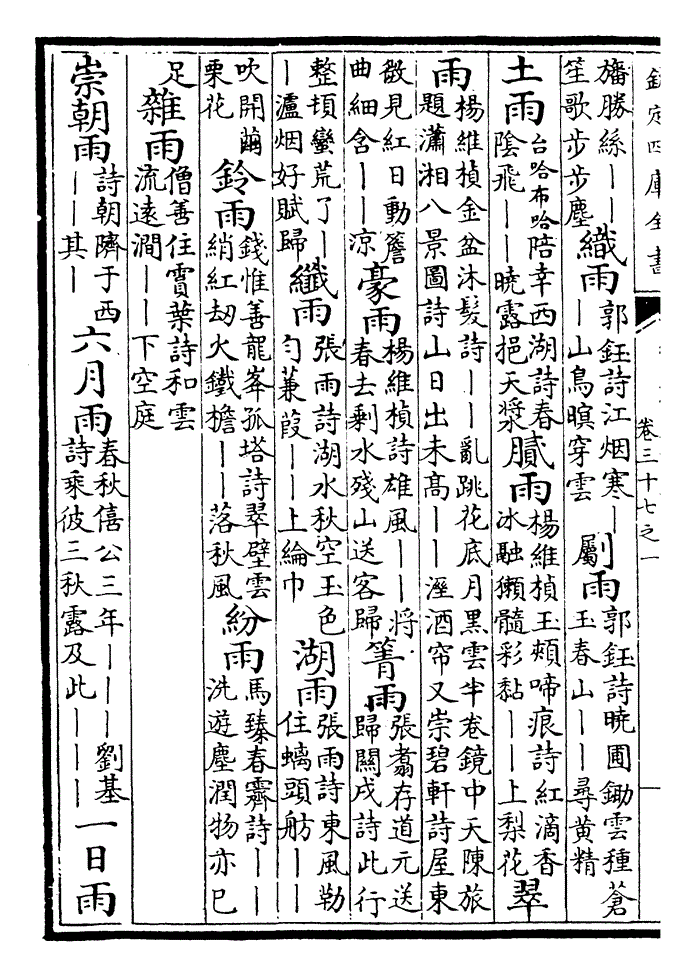 欽定四庫全書
卷三十七之一
旛勝絲｜｜
笙歌步步塵
織雨
郭鈺詩江烟寒｜
｜山鳥暝穿雲
劚雨
郭鈺詩曉圃鋤雲種蒼
玉春山｜｜尋黄精
土雨
台哈布哈陪幸西湖詩春
陰飛｜｜曉露挹天漿
膩雨
楊維楨玉頰啼痕詩紅滴香
冰融獺髓彩黏｜｜上梨花
翠
雨
楊維楨金盆沐髮詩｜｜亂跳花底月黒雲半卷鏡中天陳旅
題瀟湘八景圖詩山日出未髙｜｜溼酒帘又崇碧軒詩屋東
微見紅日動簷
曲細含｜｜涼
豪雨
楊維楨詩雄風｜｜将
春去剩水殘山送客歸
箐雨
張翥存道元送
歸闗戍詩此行
整頓蠻荒了｜
｜瀘烟好賦歸
纖雨
張雨詩湖水秋空玉色
勻蒹葭｜｜上綸巾
湖雨
張雨詩東風勒
住螭頭舫｜｜
吹開繭
栗花
鈴雨
錢惟善龍峯孤塔詩翠壁雲
綃紅刼火鐵檐｜｜落秋風
紛雨
馬臻春霽詩｜｜
洗遊塵潤物亦已
足
雜雨
僧善住霣葉詩和雲
流遠澗｜｜下空庭
崇朝雨
詩朝隮于西
｜｜其｜
六月雨
春秋僖公三年｜｜｜劉基
詩乘彼三秋露及此｜｜｜
一日雨